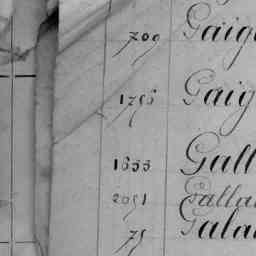 709 Gaig
1756 Gaig
1653 Gall
2051 Galla
75 Gala